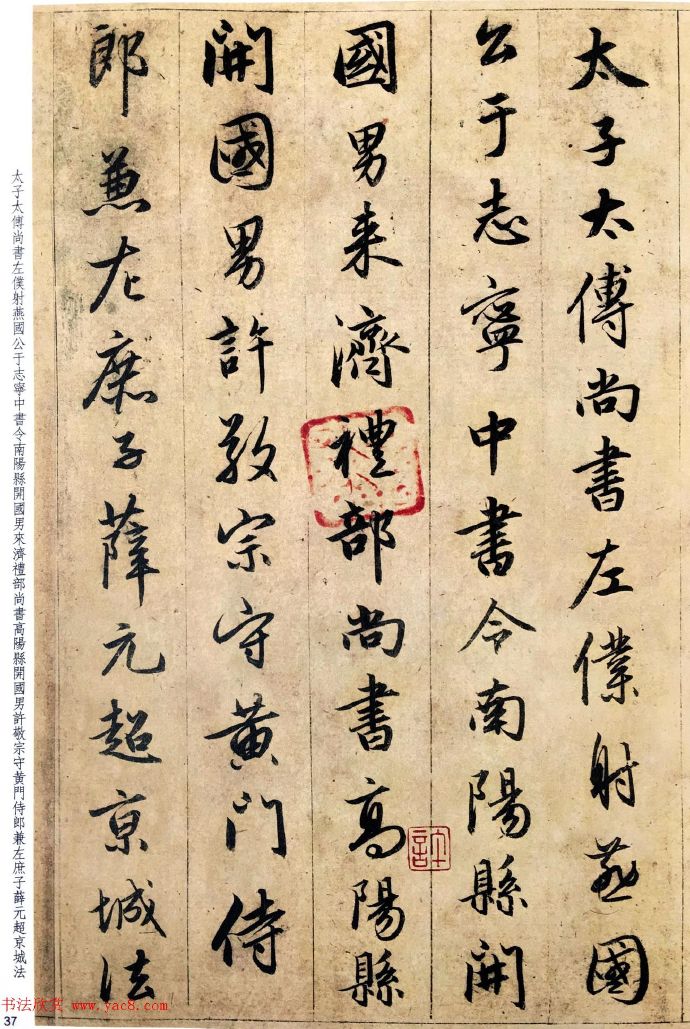 太子太傅尚書左僕射燕國
公于志寧中書令南陽縣開
國男来濟禮部尚書高陽縣
開國男許敬宗守黄門侍
郎兼左庶子薛元超京城法
太子太傅尚書左僕射燕國公于志寧中書令南陽縣開國男來濟禮部尚書高陽縣開國男許敬宗守黄門侍郎兼左庶子薛元超京城法
书法欣赏 www.yac8.com
37